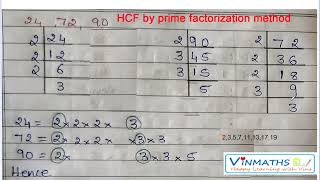 HCF by prime factorization method
24, 72, 90
2 24
2 12
2 6
3
2 90
3 45
3 15
5
2 72
2 36
2 18
3 9
3
24 = 2 x 2 x 2 x 3
72 = 2 x 2 x 2 x 3 x 3
90 = 2 x 3 x 3 x 5
2,3,5,7,11,13,17,19
Hence
VINMATHS
Happy Learning with Vins